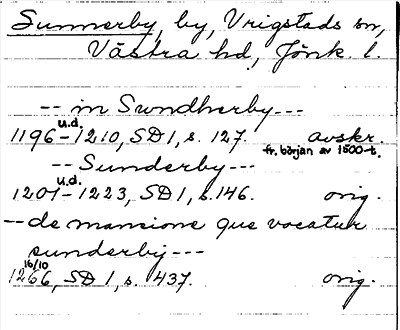 Sunnerby, by, Vrigstads sn,
Västra hd, Jönk. l.
-- in Sundherby---
1196 u.d. -1210, SD 1, s. 127. avskr.
fr. början av 1500-t.
-- Sunderby---
1201 u.d. -1223, SD 1, s. 146. orig.
-- de mansione que vocatur
sunderbij---
16/10
1266, SD 1, s. 437. orig.